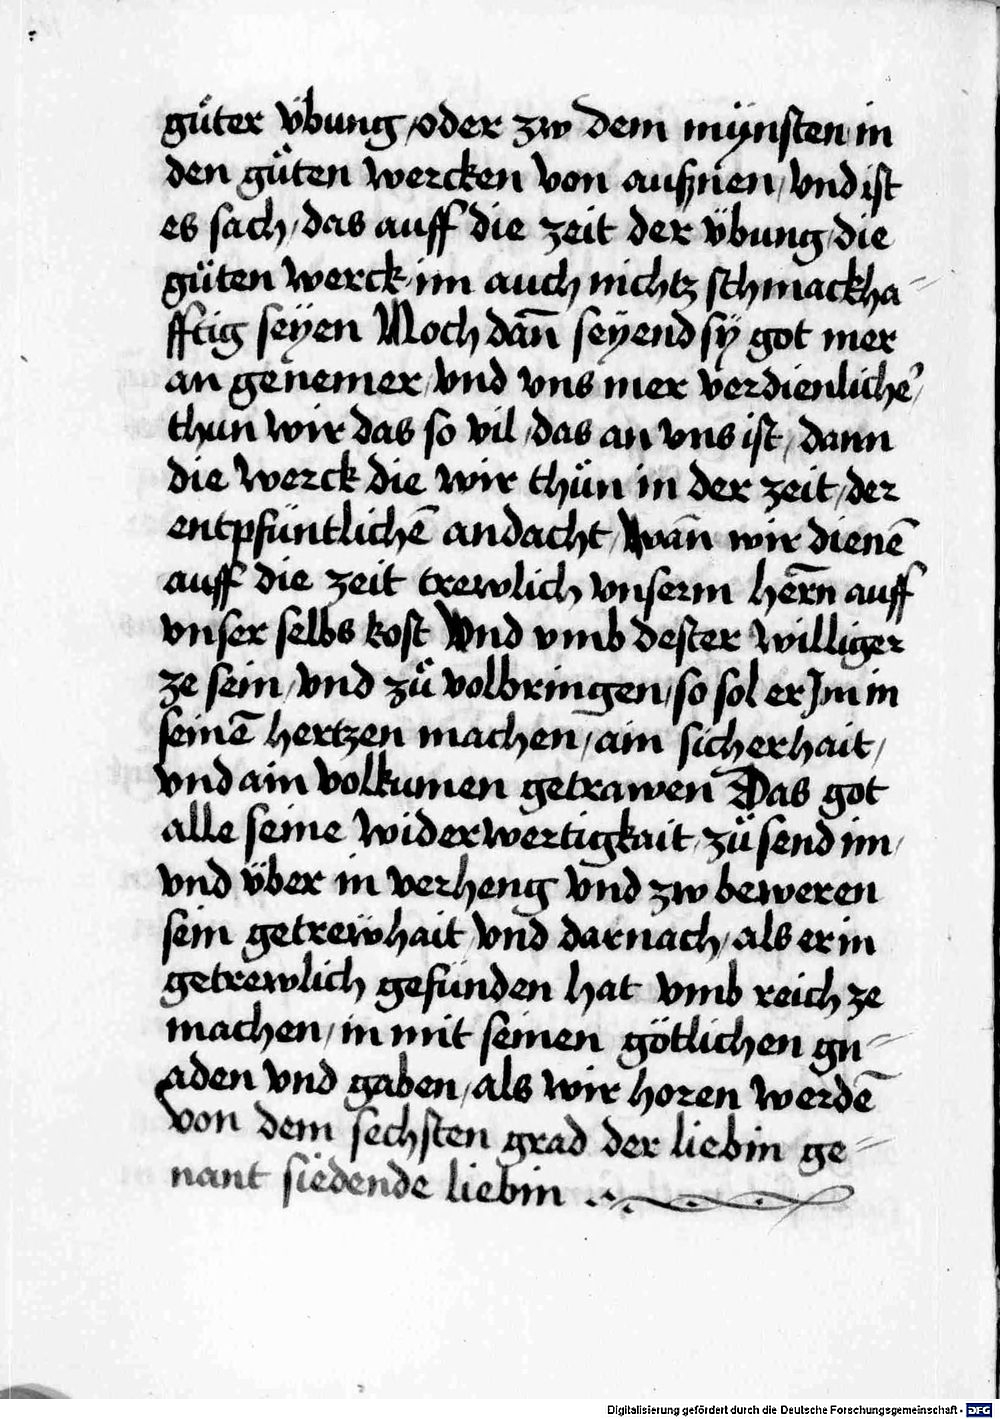 gůter v̈bung / oder zw dem mÿnsten in
den gůten wercken von auſʒnen / vnd ist
es sach / das auff die zeit der v̈bung / die
gůten werck im auch nichtz schmackha⸗
fftig seÿen Noch dan̄ seÿend sÿ got mer
an genemer / vnd vns mer verdienliche᷑ /
thun wir das so vil / das an vns ist / dann
die werck die wir thün in der zeit / der
entpfüntlichē andacht / Wan̄ wir dienē
auff die zeit trewlich vnserm herrn̄ auff
vnser selbs kost Vnd vmb dester williger
ze sein / vnd zů volbringen / so sol er Jm in
seinē hertzen machen / ain sicherhait /
vnd ain volkumen getrawen Das got
alle seine widerwertigkait / zů send im /
vnd v̈ber in verheng vnd zw beweren
sein getrewhait / vnd darnach / als er in
getrewlich gefunden hat vmb reich ze
machen / in mit seinen götlichen gn⸗
aden vnd gaben / als wir horen werdē
von dem sechsten grad der liebin ge⸗
nant siedende liebin
Digitalisierung gefördert durch die Deutsche Forschungsgemeinschaft - DFG